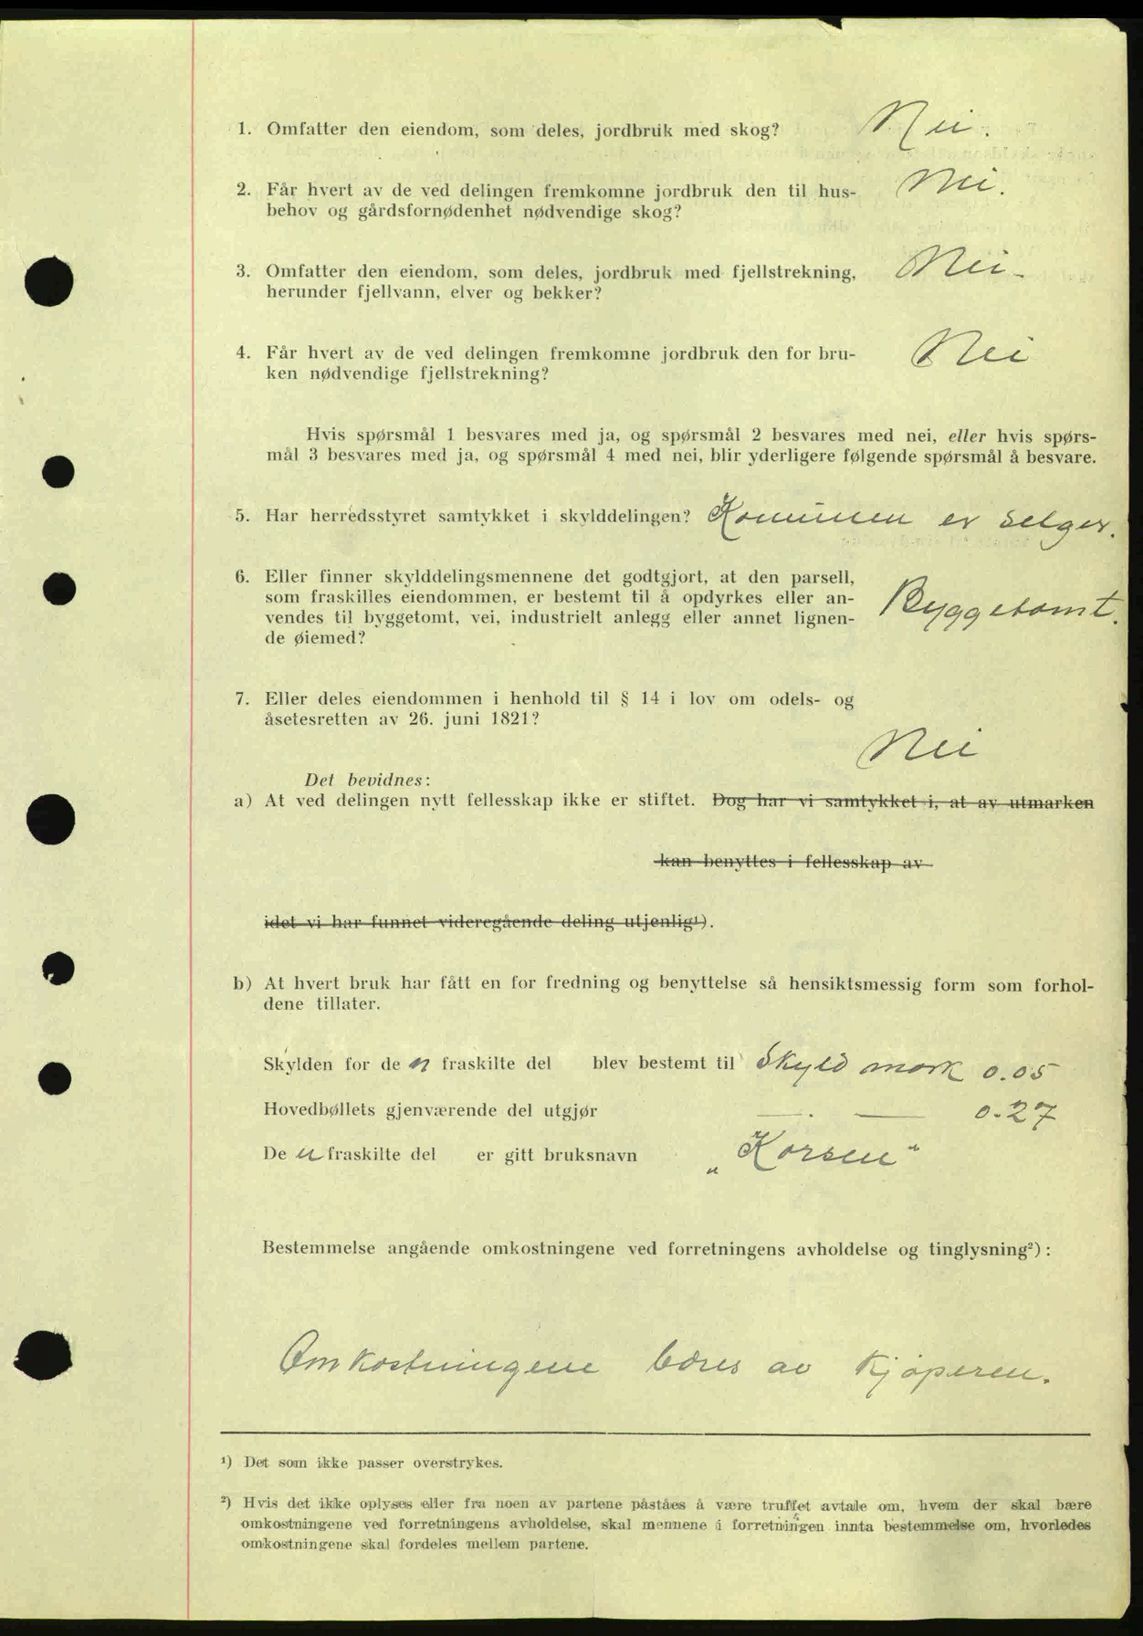 1. Omfatter den eiendom, som deles, jordbruk med skog? Nei.
2. Får hvert av de ved delingen fremkomne jordbruk den til hus- Nei.
behov og gårdsfornødenhet nødvendige skog?
3. Omfatter den eiendom, som deles, jordbruk med fjellstrekning, Nei.
herunder fjellvann, elver og bekker?
4. Får hvert av de ved delingen fremkomne jordbruk den for bru- Nei
ken nødvendige fjellstrekning?
Hvis spørsmål 1 besvares med ja, og spørsmål 2 besvares med nei, eller hvis spørs-
mål 3 besvares med ja, og spørsmål 4 med nei, blir yderligere følgende spørsmål å besvare.
5. Har herredsstyret samtykket i skylddelingen? Komunen er selger.
6. Eller finner skylddelingsmennene det godtgjort, at den parsell,
som fraskilles eiendommen, er bestemt til å opdyrkes eller an- Byggetomt.
vendes til byggetomt, vei, industrielt anlegg eller annet lignen-
de øiemed?
7. Eller deles eiendommen i henhold til § 14 i lov om odels- og
åsetesretten av 26. juni 1821?
Nei
Det bevidnes:
a) At ved delingen nytt fellesskap ikke er stiftet. Dog har vi samtykket i, at av utmarken
kan benyttes i fellesskap av
idet vi har funnet videregående deling utjenlig¹).
b) At hvert bruk har fått en for fredning og benyttelse så hensiktsmessig form som forhol-
dene tillater.
Skylden for de n fraskilte del blev bestemt til Skyld mark 0.05
Hovedbøllets gjenværende del utgjør — . — 0.27
De n fraskilte del er gitt bruksnavn „Korsen"
Bestemmelse angående omkostningene ved forretningens avholdelse og tinglysning²):
Omkostningene bæres av kjøperen.
¹) Det som ikke passer overstrykes.
²) Hvis det ikke oplyses eller fra noen av partene påståes å være truffet avtale om, hvem der skal bære
omkostningene ved forretningens avholdelse, skal mennene i forretningen innta bestemmelse om, hvorledes
omkostningene skal fordeles mellem partene.